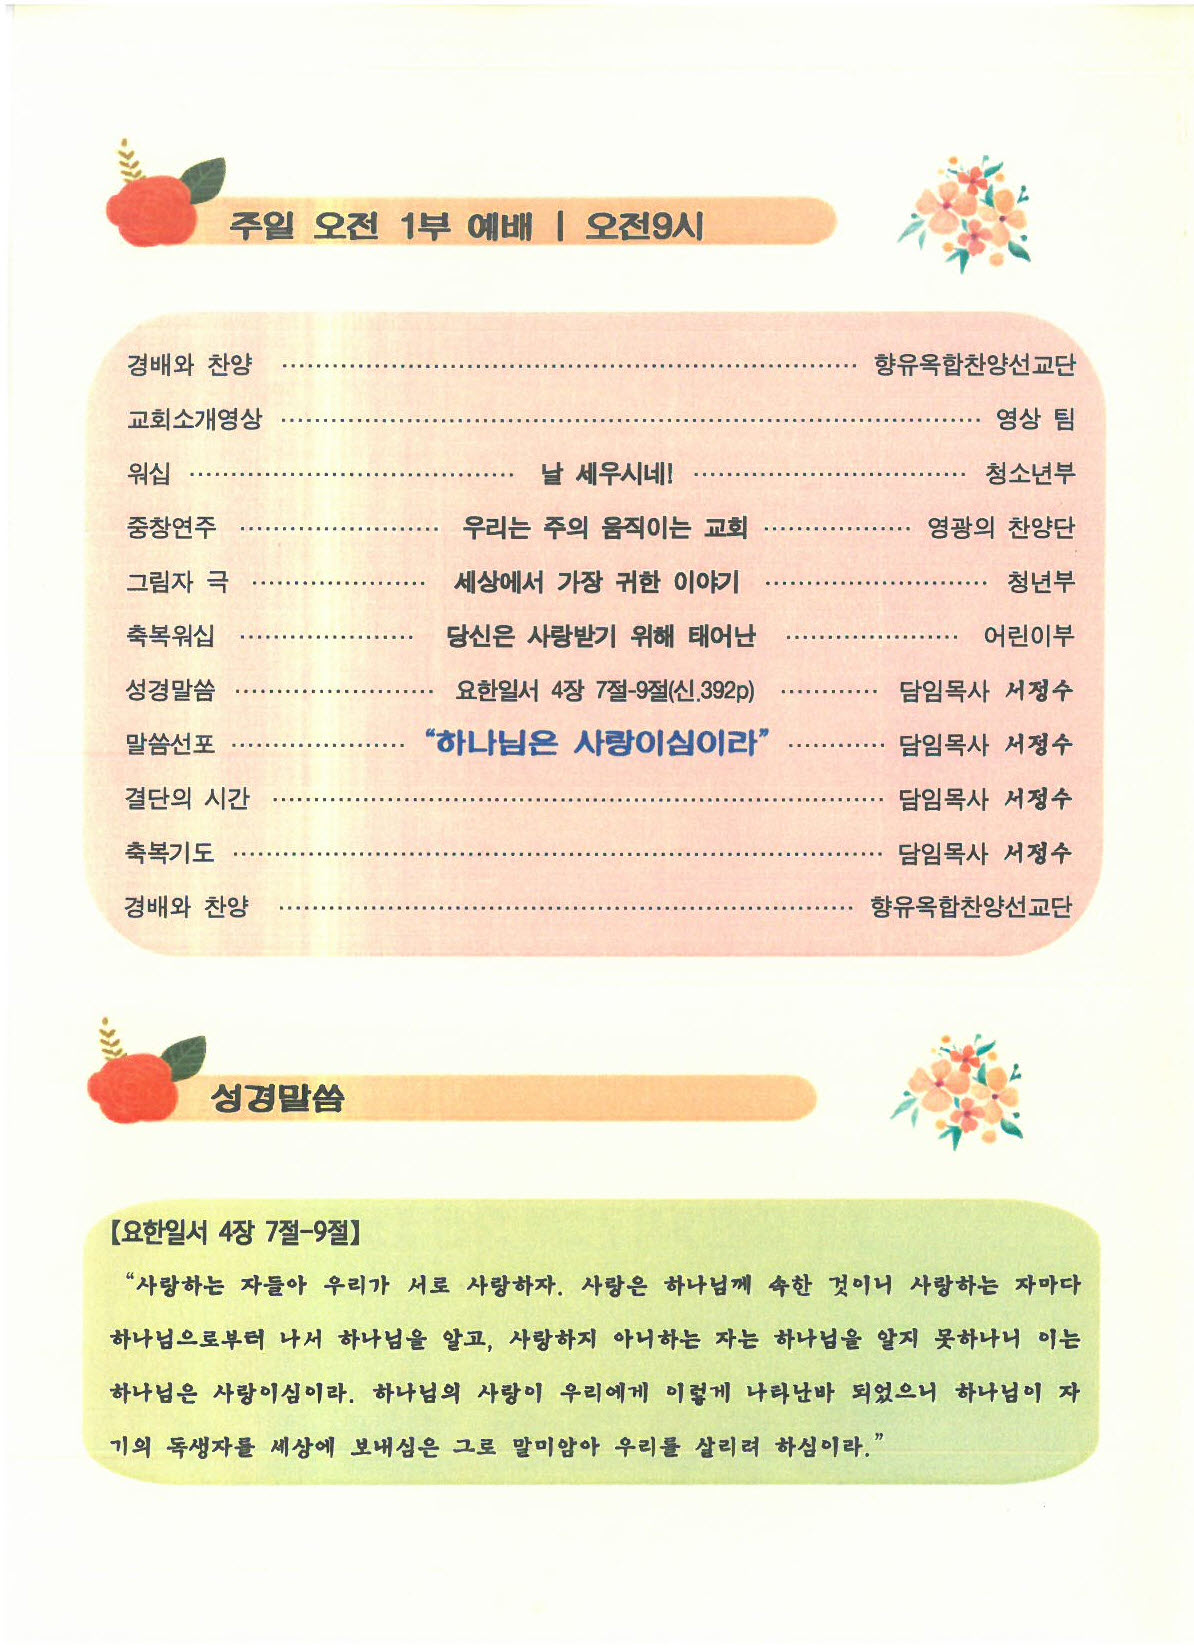 주일 오전 1부 예배 | 오전9시
경배와 찬양 ·········· 향유옥합찬양선교단
교회소개영상 ·········· 영상 팀
워십 ·········· 날 세우시네! ·········· 청소년부
중창연주 ·········· 우리는 주의 움직이는 교회 ·········· 영광의 찬양단
그림자 극 ·········· 세상에서 가장 귀한 이야기 ·········· 청년부
축복워십 ·········· 당신은 사랑받기 위해 태어난 ·········· 어린이부
성경말씀 ·········· 요한일서 4장 7절-9절(신.392p) ·········· 담임목사 서정수
말씀선포 ·········· “하나님은 사랑이심이라” ·········· 담임목사 서정수
결단의 시간 ·········· 담임목사 서정수
축복기도 ·········· 담임목사 서정수
경배와 찬양 ·········· 향유옥합찬양선교단
성경말씀
【요한일서 4장 7절-9절】
“사랑하는 자들아 우리가 서로 사랑하자. 사랑은 하나님께 속한 것이니 사랑하는 자마다
하나님으로부터 나서 하나님을 알고, 사랑하지 아니하는 자는 하나님을 알지 못하나니 이는
하나님은 사랑이심이라. 하나님의 사랑이 우리에게 이렇게 나타난바 되었으니 하나님이 자
기의 독생자를 세상에 보내심은 그로 말미암아 우리를 살리려 하심이라.”